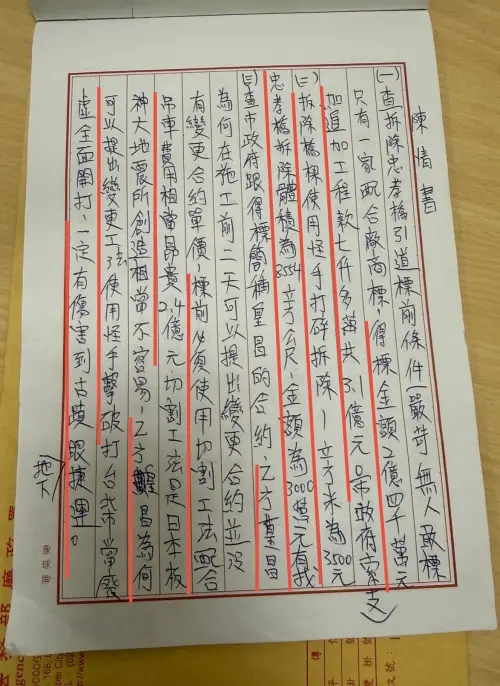 陳情書
(一)查拆除忠孝橋引道標前條件一嚴苛無人敢標
只有一家配合廠商標,得標金額2億四千萬元
加追加工程款七仟多萬共3.1億元 市政府家支)
(二)拆除橋樑使用怪手打碎拆除1立方米為3500元
忠孝橋拆除體積為8554立方公尺,金額為3000萬元有找
(三)查市政府跟得標簡稱皇昌的合約,乙方皇昌
為何在施工前二天可以提出變更合約並沒
有變更合約單價,標前必便使用切割工法配合
吊車費用相當昂貴2.4億元.切割工法是日本板
神大地震所創造相當不容易,乙方 昌為何
可以提出變更工法使用怪手擊破打 當發
虛全面開打,一定有傷害到古蹟跟捷運。
地下
象球牌
部廉政
gency